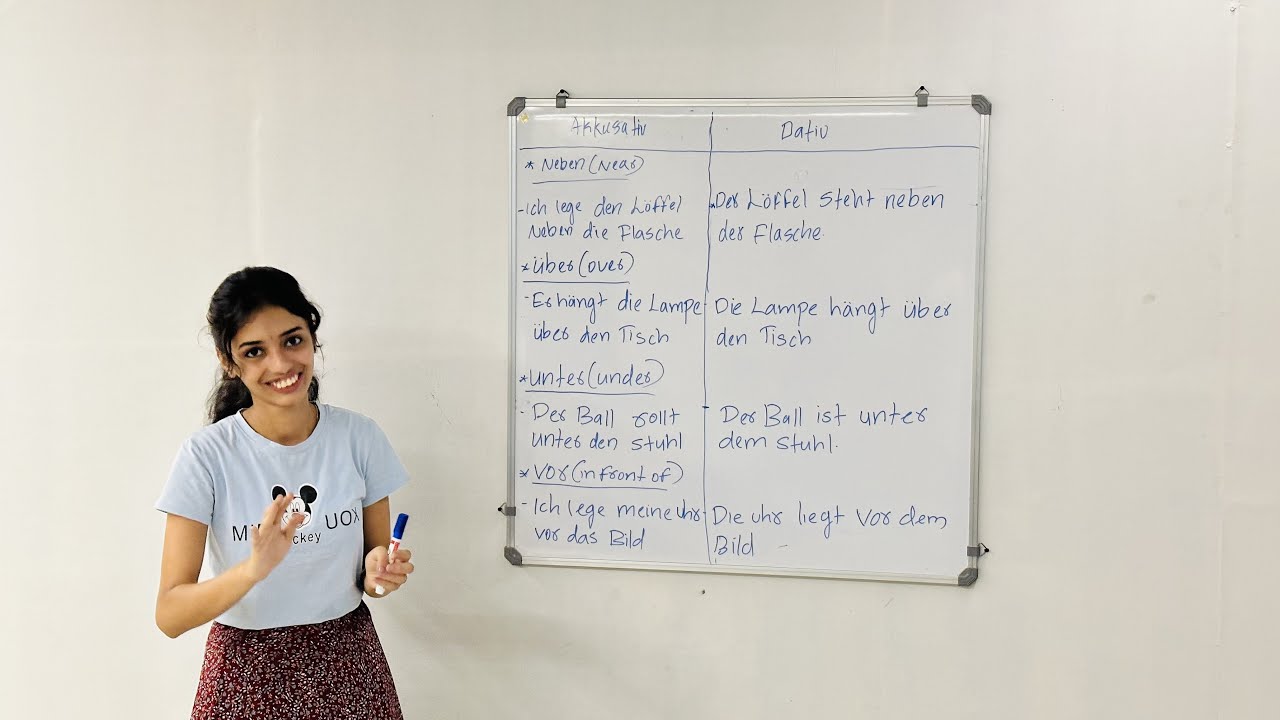 Akkusativ
Dativ
* Neben (Near)
- Ich lege den Löffel
Neben die Flasche
Der Löffel steht neben
der Flasche.
* über (over)
- Er hängt die Lampe
über den Tisch
- Die Lampe hängt über
den Tisch
* unter (under)
- Der Ball rollt
unter den stuhl
- Der Ball ist unter
dem stuhl.
* Vor (in front of)
- Ich lege meine uhr
vor das Bild
- Die uhr liegt vor dem
Bild -
UOX